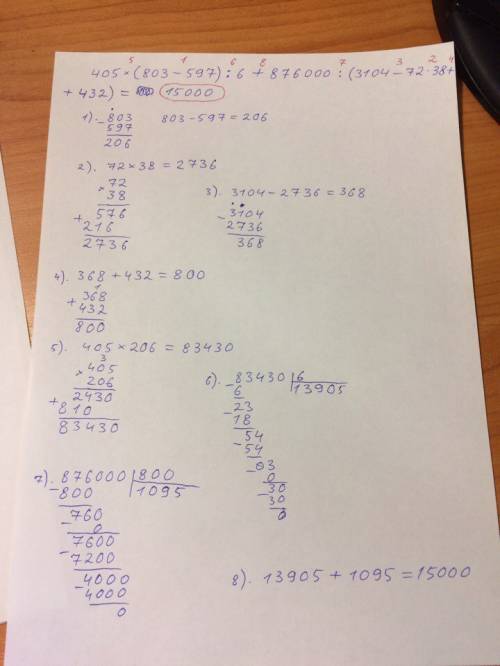 5 1 6 8 7 3 2 4
405×(803−597):6+876000:(3104−72·38+
+432) = 15000
1). −803 803−597=206
597
206
2). 72×38=2736
×72
38
+576
216
2736
3). 3104−2736=368
−3104
2736
368
4). 368+432=800
1
+368
432
800
5). 405×206=83430
3
×405
206
+2430
810
83430
6). −83430 6
6 13905
−23
18
−54
54
−03
0
−30
30
0
7). −876000 800
800 1095
−760
0
−7600
7200
−4000
4000
0
8). 13905+1095=15000